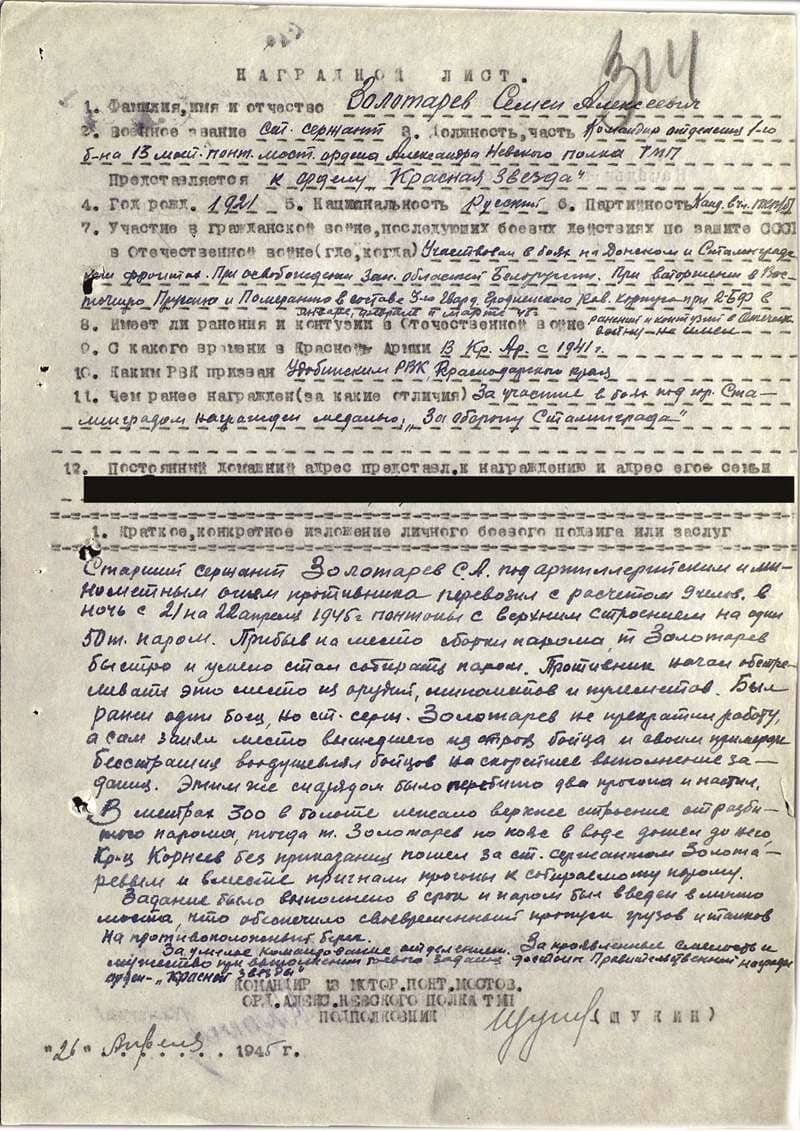 314
НАГРАДНОЙ ЛИСТ.
1. Фамилия,имя и отчество Золотарев Семен Алексеевич
2. Военное звание ст. сержант 3. Должность,часть Командир отделения 1-го
б-на 13 мот. понт. мост. ордена Александра Невского полка РГК
Представляется к ордену "Красная Звезда"
4. Год рожд. 1921 5. Национальность Русский 6. Партийность Канд. в чл.
7. Участие в гражданской войне,последующих боевых действиях по защите СССР
в Отечественной войне(где,когда) Участвовал в боях на Донском и Сталинград-
ском фронтах. При освобождении Зап. областей Белоруссии. При вторжении в Вос-
точную Пруссию и Померанию в составе 3-го Гвард. Гродненского Кав. Корпуса при 2-БФ в
январе, феврале и марте 45г.
8. Имеет ли ранения и контузии в Отечественной войне ранений и контузий в Отечеств.
войну - не имел
9. С какого времени в Красной Армии В Кр. Ар. с 1941 г.
10. Каким РВК призван Удобинским РВК, Краснодарского края
11. Чем ранее награжден(за какие отличия) За участие в боях под гор. Ста-
линградом награжден медалью, "За оборону Сталинграда"
12. Постоянный домашний адрес представл.к награждению и адрес его семьи
1. Краткое,конкретное изложение личного боевого подвига или заслуг
Старший сержант Золотарев С.А. под артиллерийским и ми-
нометным огнем противника перевозил с расчетом 9 челов. в
ночь с 21 на 22 апреля 1945 г понтоны с верхним строением на один
50 т. паром. Прибыв на место сборки парома, т. Золотарев
быстро и умело стал собирать паром. Противник начал обстре-
ливать это место из орудий, минометов и пулеметов. Был
ранен один боец, но ст. серж. Золотарев не прекратил работу,
а сам занял место вышедшего из строя бойца и своим примером
бесстрашия воодушевлял бойцов на скорейшее выполнение за-
дания. Этим же снарядом было перебито два прогона и настил.
В метрах 300 в болоте лежало верхнее строение от разби-
того парома, тогда т. Золотарев по пояс в воде дошел до него,
Кр-ц Корнеев без приказания пошел за ст. сержантом Золота-
ревым и вместе пригнали прогоны к собираемому парому.
Задание было выполнено в срок и паром был введен в линию
моста, что обеспечило своевременный пропуск грузов и танков
на противоположный берег.
За умелое командование отделением. За проявленные смелость и
мужество при выполнении боевого задания достоин Правительственной награды
орден - "Красной звезды"
КОМАНДИР 13 МОТОР.ПОНТ.МОСТОВ.
ОРД.АЛЕКС.НЕВСКОГО ПОЛКА РГК
ПОДПОЛКОВНИК (ЩУКИН)
"26" Апреля 1945 г.